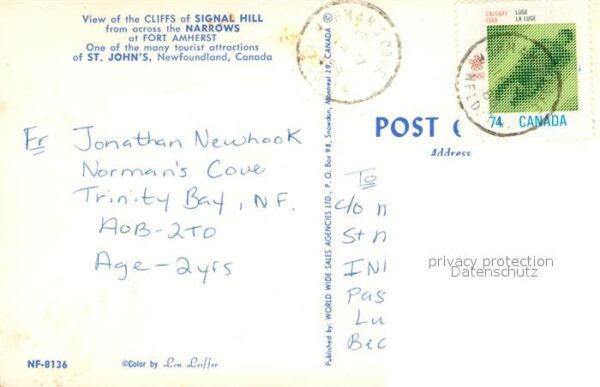 View of the CLIFFS of SIGNAL HILL
from across the NARROWS
at FORT AMHERST
One of the many tourist attractions
of ST. JOHN'S, Newfoundland, Canada
Fr Jonathan Newhook
Norman's Cove
Trinity Bay, NF.
A0B-2T0
Age-2yrs
NF-8136
©Color by Len Leiffer
Published by: WORLD WIDE SALES AGENCIES LTD., P. O. Box 98, Snowdon, Montreal 29, CANADA
CALGARY
1988
LUGE
LA LUGE
74 CANADA
POST
Address
To
c/o
St
INI
Pas
Lu
Bec
privacy protection
Datenschutz